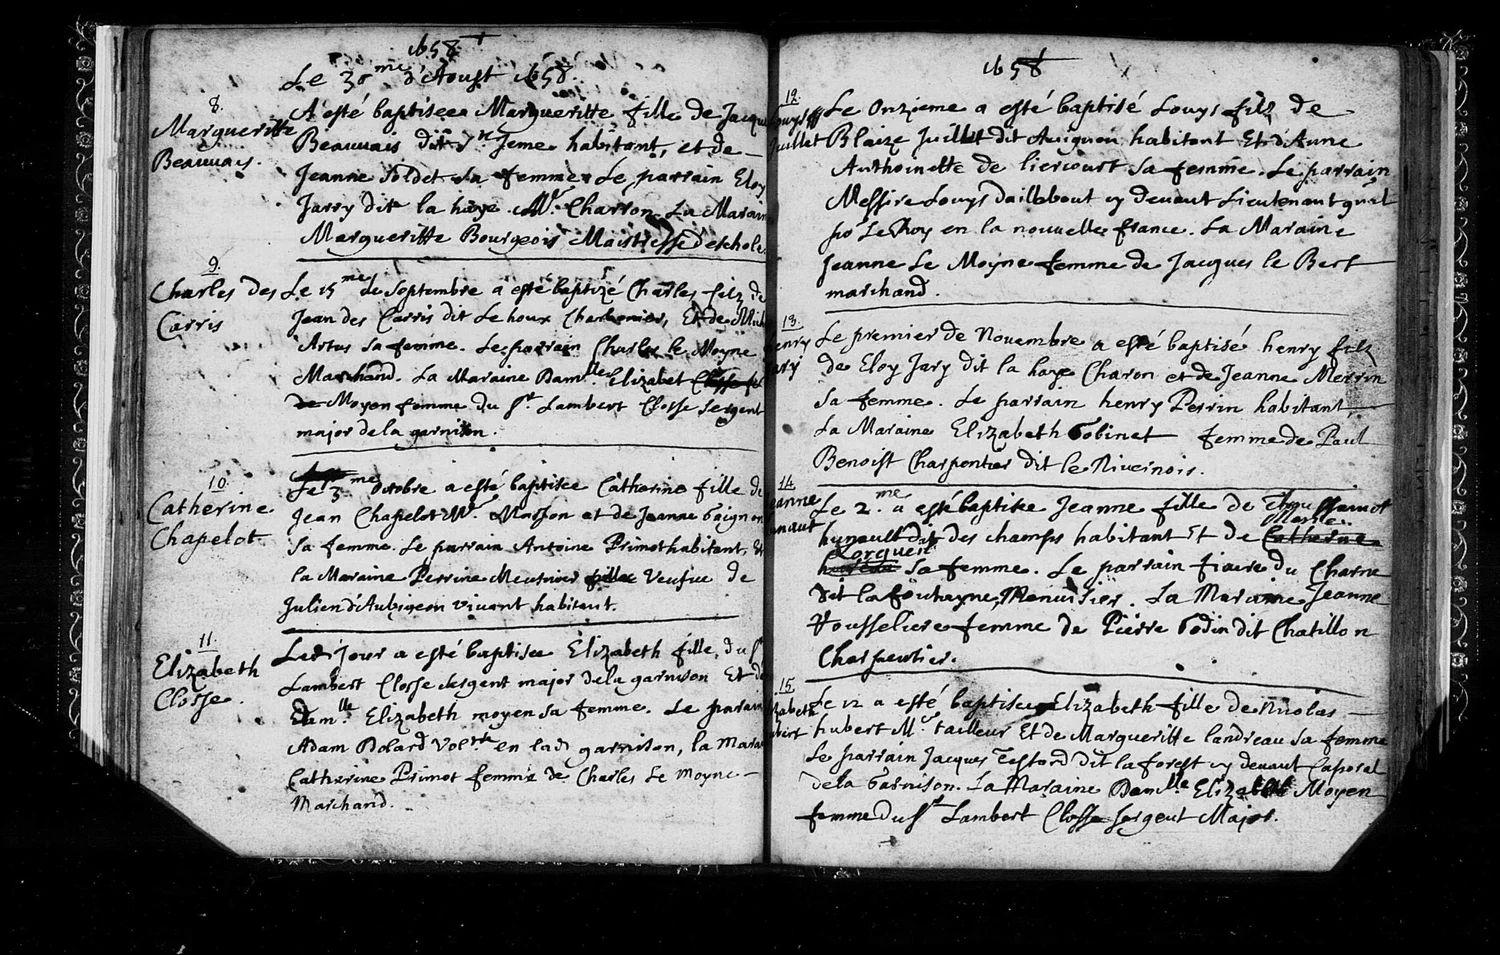 1658
Le 30me d'Aoust 1658
8.
Margueritte
Beauvais.
A esté baptisee Margueritte fille de Jacque
Beauvais dit St Jeme habitant, et de
Jeanne Soldet sa femme. Le parrain Eloy
Jarry dit la haye Mr. Charron. La Marain
Margueritte Bourgeois Maistresse d'eschole.
9.
Charles des
Carris
Le 15me de Septembre a esté baptizé Charles filz de
Jean des Carris dit le houx Charbonier, Et de Mich
Artus sa femme. Le parrain Charles le Moyne
Marchand. La Maraine Damlle. Elizabet Closse fe
de Moyen femme du Sr. Lambert Closse Sergent
major de la garnison.
10.
Catherine
Chapelot
Le 3me Octobre a esté baptisee Catherine fille de
Jean Chapelot Mr. Masson et de Jeanne Gaignon
sa femme. Le parrain Antoine Primot habitant, Et
la Maraine Perrine Meusnier fille Veufve de
Julien d'Aubigeon vivant habitant.
11.
Elizabeth
Closse.
Led: Jour a esté baptisee Elizabeth fille, du Sr
Lambert Closse sergent major de la garnison Et de
Damlle Elizabeth moyen sa femme. Le parain
Adam Dolard Volre en lad: garnison, la Mara
Catherine Primot femme de Charles Le Moyne
Marchand.
1658
12.
Louys
Juillet
Le Onzieme a esté baptisé Louys filz de
Blaize Juillet dit Avignon habitant Et d'Anne
Anthoinette de liercourt sa femme. Le parrain
Messire Louys Daillebout cy devant Lieutenant gnal
po Le Roy en la nouvelle france. La Maraine
Jeanne Le Moyne femme de Jacques le Bert
marchand.
13.
enry
ary
Le premier de Novembre a esté baptisé henry filz
de Eloy Jary dit la haye Charon et de Jeanne Merrin
sa femme. Le parrain henry Perrin habitant,
La Maraine Elizabeth Gobinet femme de Paul
Benoist Charpentier dit le Nivernois.
14.
eanne
unaut
Le 2.me a esté baptisee Jeanne fille de Toussainct
hunault dit des champs habitant Et de Catherine
Marie
Lorgueil
sa femme. Le parrain fiacre du Charne
dit la fontayne, Menuisier. La Maraine Jeanne
Vousseliere femme de Pierre Godin dit Chatillon
Charpentier.
15.
zabeth
bert
Le 12 a esté baptisee Elizabeth fille de Nicolas
hubert Mr. tailleur Et de Margueritte landreau sa femme
Le parrain Jacques Testard dit la forest cy devant Caporal
de la Garnison. La Maraine Damlle Elizabeth Moyen
femme du Sr Lambert Closse sergent Major.